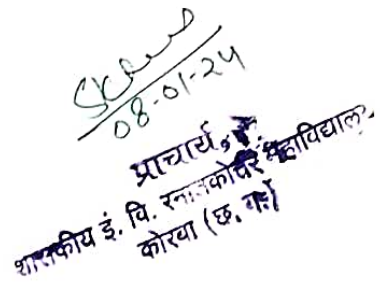 08-01-24
प्राचार्य,
शासकीय इं. वि. स्नातकोत्तर महाविद्यालय
कोरबा (छ. ग.)